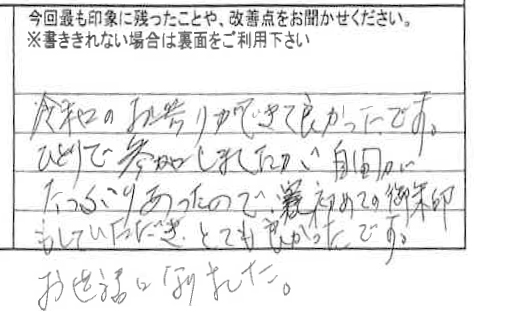 今回最も印象に残ったことや、改善点をお聞かせください。
※書ききれない場合は裏面をご利用下さい
令和のお祭りができて良かったです。
ひとりで参加しましたが、自由が
たっぷりあったので、初めての御朱印
もしていただき、とても良かったです。
お世話になりました。